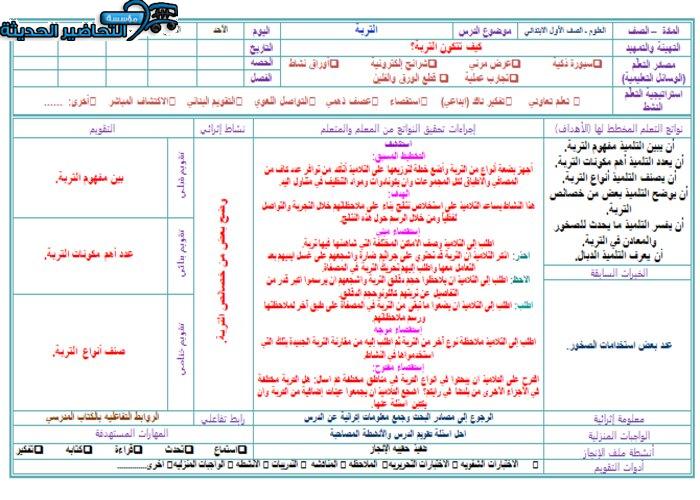 مؤسسة
التحاضير الحديثة
المادة – الصف
العلوم - الصف الأول الابتدائي
موضوع الدرس
التربة
اليوم
الأحد
التهيئة والتمهيد
كيف تتكون التربة؟
التاريخ
مصادر التعلم
(الوسائل التعليمية)
سبورة ذكية
عرض مرئي
شرائح إلكترونية
أوراق نشاط
تجارب عملية
قطع الورق والفلين
الحصة
الفصل
استراتيجية التعلم
النشط
تعلم تعاوني
تفكير ناقد (ابداعي)
استقصاء
عصف ذهني
التواصل اللغوي
التقويم البنائي
الاكتشاف المباشر
أخرى: ......
نواتج التعلم المخطط لها (الأهداف)
إجراءات تحقيق النواتج من المعلم والمتعلم
نشاط إثرائي
التقويم
أن يبين التلميذ مفهوم التربة.
أن يعدد التلميذ أهم مكونات التربة.
أن يصنف التلميذ أنواع التربة.
أن يوضح التلميذ بعض من خصائص
التربة.
أن يفسر التلميذ ما يحدث للصخور
والمعادن في التربة.
أن يعرف التلميذ الدبال.
الخبرات السابقة
عدد بعض استخدامات الصخور.
استكشف
التخطيط المسبق:
أجهز بضعة أنواع من التربة وأضع خطة لتوزيعها على التلاميذ أتأكد من توافر عدد كاف من
المصافي والأطباق لكل المجموعات وأن يكون
الهدف:
هذا النشاط يساعد التلاميذ على استخلاص نتائج بناء على ملاحظاتهم خلال التجربة والتواصل
لفظياً ومن خلال الرسم حول هذه النتائج.
استقصاء مبني
اطلب إلى التلاميذ وصف الأماكن المختلفة التي شاهدوا فيها تربة.
احذر: أذكر التلاميذ أن التربة قد تحتوي على جراثيم ضارة وأشجعهم على غسل أيديهم بعد
التعامل معها وأطلب إليهم تحريك التربة في المصفاة.
ألاحظ: أطلب إلى التلاميذ أن يلاحظوا حجم دقائق التربة وأشجعهم أن يرسموا أكبر قدر من
التفاصيل عن تربتهم كألوان وحجم الدقائق.
اطلب: اطلب إلى التلاميذ أن يضعوا ما تبقى من التربة في المصفاة على طبق آخر لملاحظتها
ورسم ملاحظاتهم.
استقصاء موجه
اطلب إلى التلاميذ ملاحظة نوع آخر من التربة ثم اطلب إليه من مقارنة التربة الجديدة بتلك التي
استخدموها في النشاط.
استقصاء مفتوح:
اقترح على التلاميذ أن يبحثوا في أنواع التربة في مناطق مختلفة ثم أسأل: هل التربة مختلفة
في الأجزاء الأخرى من بلدنا؟
وضح بعض من خصائص التربة.
تقويم قبلي
بين مفهوم التربة.
تقويم بنائي
عدد أهم مكونات التربة.
تقويم ختامي
صنف أنواع التربة.
معلومة إثرائية
الرجوع إلى مصادر البحث وجمع معلومات إثرائية عن الدرس
رابط تفاعلي
الروابط التفاعلية بالكتاب المدرسي
الواجبات المنزلية
أحل أسئلة تقويم الدرس والأنشطة المصاحبة
المهارات المستهدفة
أنشطة ملف الإنجاز
تنفيذ حقيبة الإنجاز
استماع
تحدث
قراءة
كتابه
تفكير
أدوات التقويم
الاختبارات الشفويه
الاختبارات التحريريه
الملاحظه
المناقشه
التدريبات
الأنشطه
الواجبات المنزليه
اخرى...............